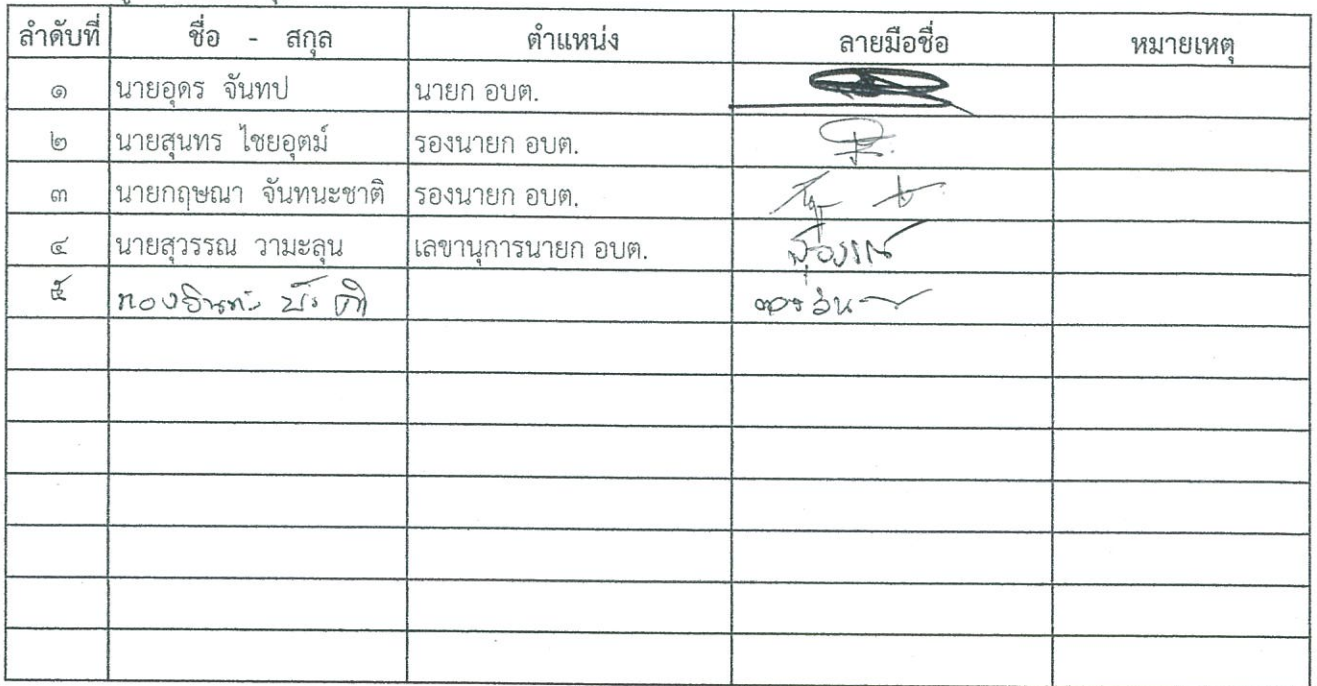 ลำดับที่ ชื่อ - สกุล ตำแหน่ง ลายมือชื่อ หมายเหตุ
๑ นายอุดร จันทป นายก อบต.
๒ นายสุนทร ไชยอุตม์ รองนายก อบต.
๓ นายกฤษณา จันทนะชาติ รองนายก อบต.
๔ นายสุวรรณ วามะลุน เลขานุการนายก อบต. สุวรรณ
๕